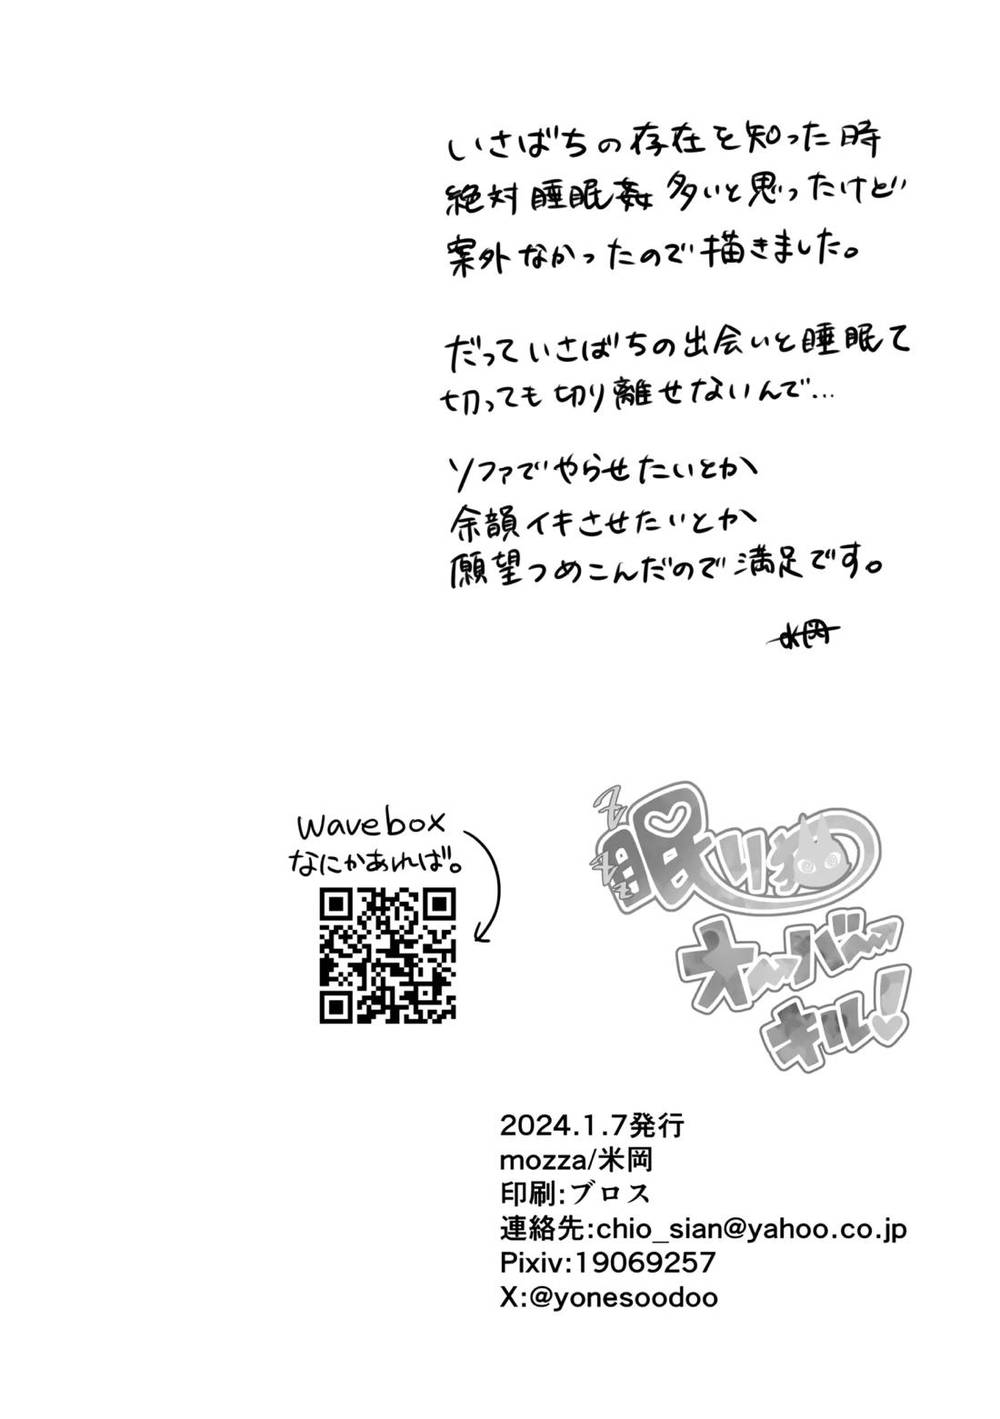 いさばちの存在を知った時
絶対睡眠姦多いと思ったけど
案外なかったので描きました。
だっていさばちの出会いと睡眠て
切っても切り離せないんで…
ソファでやらせたいとか
余韻イキさせたいとか
願望つめこんだので満足です。
米岡
wavebox
なにかあれば。
zzz
眠り猫
オーバー
キル!
2024.1.7発行
mozza/米岡
印刷:ブロス
連絡先:chio_sian@yahoo.co.jp
Pixiv:19069257
X:@yonesoodoo